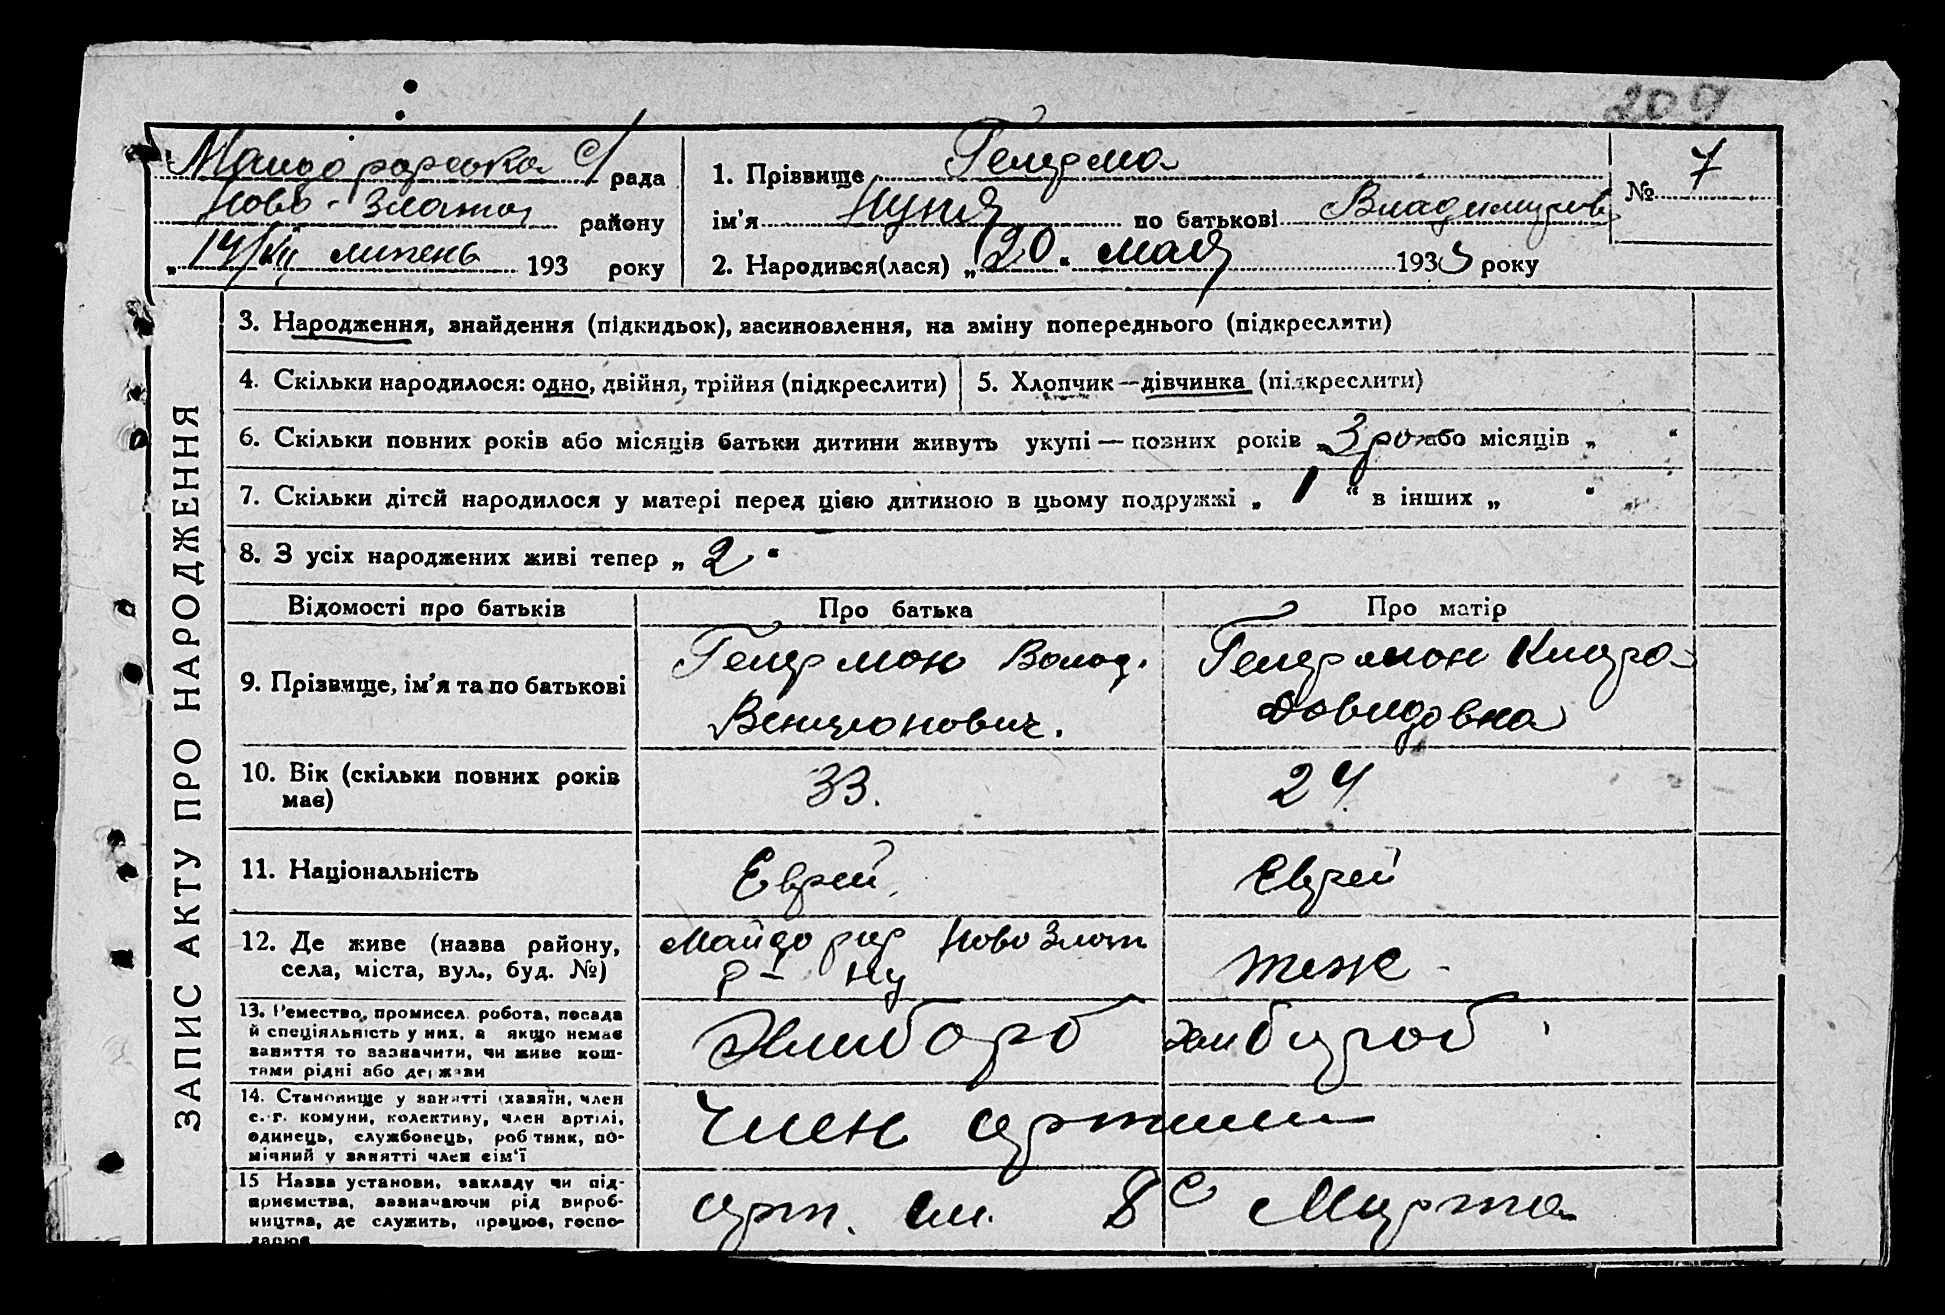 209
рада
Ново-Златоп району
"14/VII липень 193 року
1. Прізвище
ім'я по батькові Владимиров
2. Народився(лася) "20" мая 1933 року
№ 7
ЗАПИС АКТУ ПРО НАРОДЖЕННЯ
3. Народження, знайдення (підкидьок), засиновлення, на зміну попереднього (підкреслити)
4. Скільки народилося: одно, двійня, трійня (підкреслити)
5. Хлопчик—дівчинка (підкреслити)
6. Скільки повних років або місяців батьки дитини живуть укупі — повних років „3 ро або місяців „ “
7. Скільки дітей народилося у матері перед цією дитиною в цьому подружжі „ 1 “ в інших „ “
8. З усіх народжених живі тепер „ 2 “
Відомості про батьків Про батька Про матір
9. Прізвище, ім'я та по батькові
Волод.
Довидовна
10. Вік (скільки повних років має)
33. 24
11. Національність Еврей Еврей
12. Де живе (назва району, села, міста, вул., буд. №)
Ново Злат
р-ну теж -
13. Ремество, промисел, робота, посада
й спеціяльність у них, а якщо немає
заняття то зазначити, чи живе кош-
тами рідні або держави
Хлибороб Хлибороб
14. Становище у занятті (хазяїн, член
с.-г. комуни, колективу, член артілі,
одинець, службовець, робітник, по-
мічний у занятті член сім'ї
Член артили
15 Назва установи, закладу чи під-
приємства, зазначаючи рід вироб-
ництва, де служить, працює, госпо-
дарює
арт. им. 8с Марта